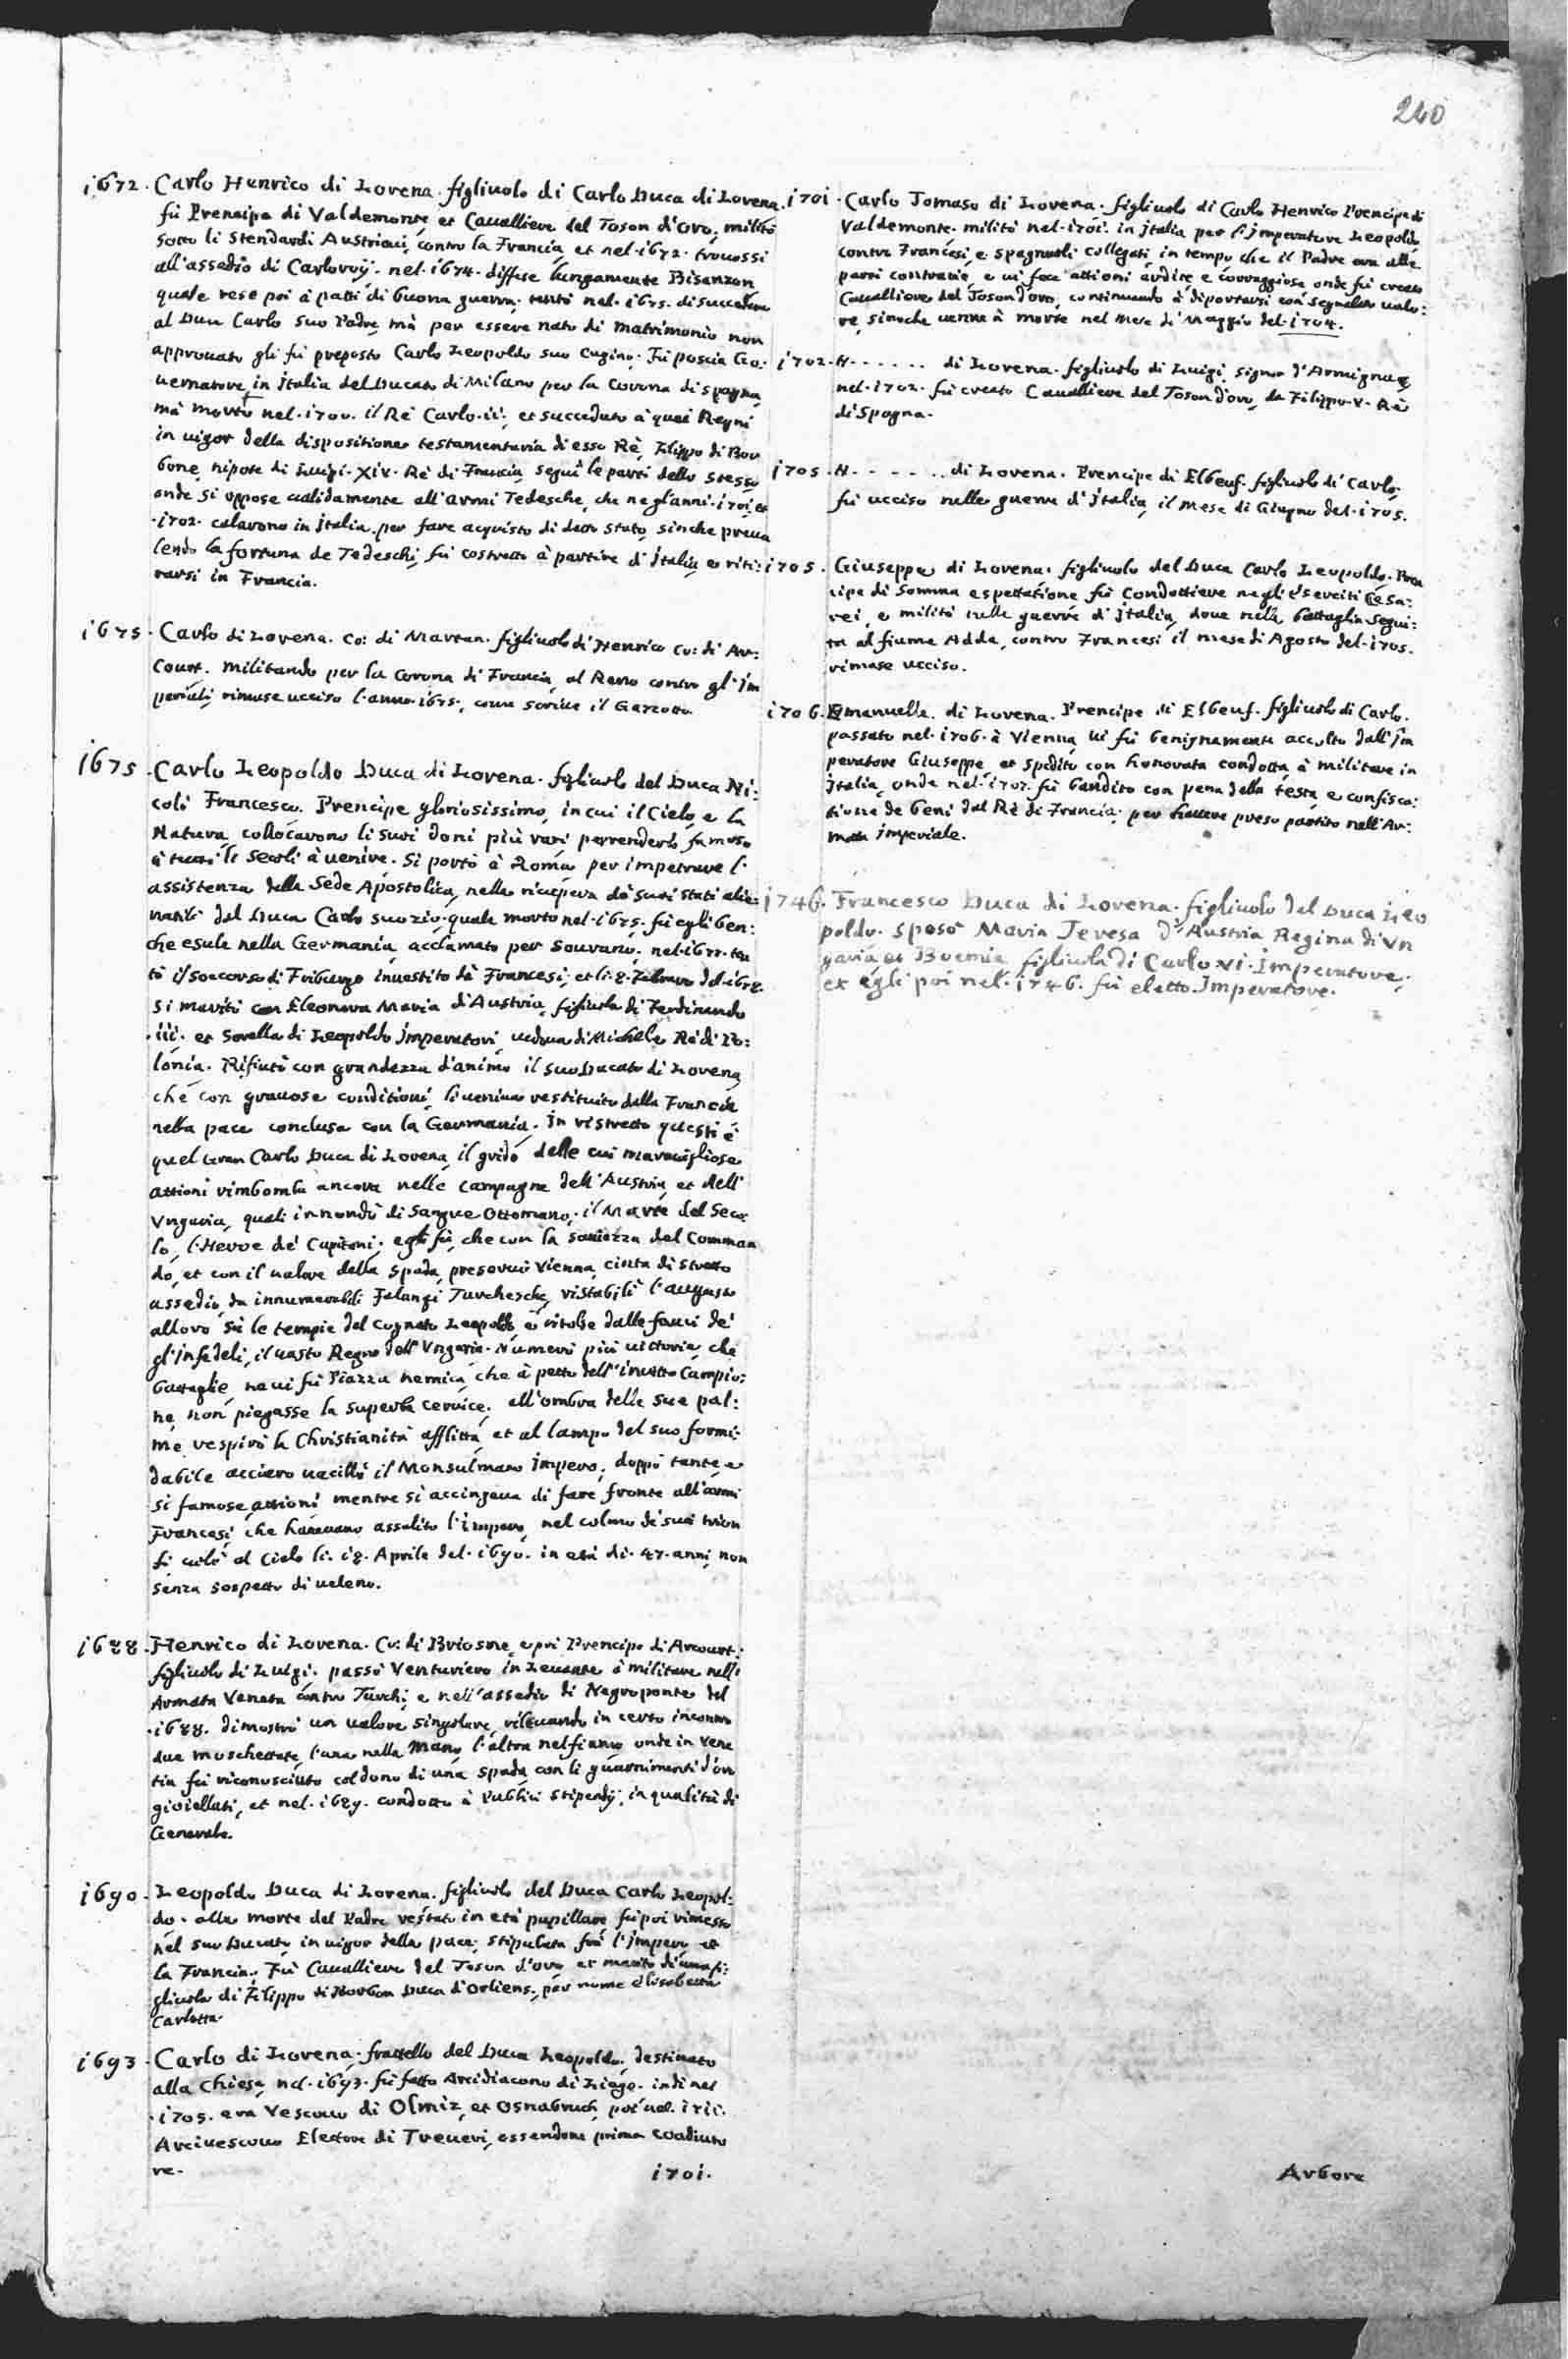 240
1672. Carlo Henrico di Lorena. figliuolo di Carlo Duca di Lorena.
fù Prencipe di Valdemonte, et Cavalliere del Toson d'oro; militò
sotto li Stendardi Austriaci, contro la Francia, et nel. 1672. trouossi
all'assedio di Carlovvÿ. nel. 1674. diffese lungamente Bisanzon
quale rese poi à patti di buona guerra; tentò nel. 1675. di succedere
al Duca Carlo suo Padre, mà per essere nato di matrimonio non
approuato gli fù preposto Carlo Leopoldo suo Cugino. Fù poscia Go:
uernatore in Italia del Ducato di Milano per la Corona di spagna,
mà morto nel. 1700. il Rè Carlo. ii. et succeduto à quei Regni
in uigor della dispositione testamentaria di esso Rè, Filippo di Bor
bone, nipote di Luigi. XIV. Rè di Francia, seguì le parti dello stesso
onde si oppose ualidamente all'armi Tedesche, che negl'anni. 1701. et
.1702. calarono in Italia per fare acquisto di detto stato, sinche preua
lendo la fortuna de Tedeschi, fù costretto à partire d'Italia, e riti:
rarsi in Francia.
1675. Carlo di Lorena. Co: di Marsan. figliuolo di Henrico Co: di Ar:
court. militando per la Corona di Francia, al Reno contro gl'Im
periali, rimase ucciso l'anno. 1675., come scriue il Gazzotto.
1675. Carlo Leopoldo Duca di Lorena. figliuolo del Duca Ni:
colò Francesco. Prencipe gloriosissimo, in cui il Cielo, e la
Natura, collocarono li suoi doni più rari per renderlo famoso
à tutti li secoli à uenire. Si portò à Roma per impetrare l'
assistenza della Sede Apostolica, nella ricupera de suoi stati alie:
natili dal Duca Carlo suo zio. quale morto nel. 1675. fù egli ben:
che esule nella Germania, acclamato per Sourano; nel. 1677. ten
tò il soccorso di Friburgo inuestito da Francesi, et li. 8. Febraro del. 1678.
si maritò con Eleonora Maria d'Austria, figliuola di Ferdinando
.iii. et Sorella di Leopoldo Imperatori, uedoua di Michele Rè di Po:
lonia. Rifiutò con grandezza d'animo il suo Ducato di Lorena,
che con grauose conditioni, li ueniua restituito dalla Francia
nella pace conclusa con la Germania. In ristretto questi è
quel Gran Carlo Duca di Lorena, il grido delle cui marauigliose
attioni rimbomba ancora nelle campagne dell'Austria, et dell'
Vngaria, quali innondò di Sangue Ottomano; il Marte del Seco
lo, l'Heroe de' Capitani; egli fù, che con la sauiezza del Comman
do, et con il ualore della Spada, preseruò Vienna, cinta di stretto
assedio, da innumerabili Falangi Turchesche, ristabilì l'augusto
alloro sù le tempie del Cognato Leopoldo, e ritolse dalle fauci de'
gl'infedeli, il uasto Regno dell'Vngaria. Numerò più uittorie, che
battaglie, ne ui fù Piazza nemica, che à petto dell'inuitto Campio:
ne, non piegasse la superba ceruice. all'ombra delle sue pal:
me respirò la Christianità afflitta, et al lampo del suo formi:
dabile acciaro uacillò il Monsulmano impero; doppò tante, e
si famose attioni mentre si accingeua di fare fronte all'armi
Francesi, che haueuano assalito l'impero, nel colmo de' suoi trion
fi uolò al Cielo li. 18. Aprile del. 1690. in età di. 47. anni, non
senza sospetto di ueleno.
1688. Henrico di Lorena. Co: di Briosne, e poi Prencipe di Arcourt.
figliuolo di Luigi. passò Venturiero in Leuante à militare nell'
Armata Veneta contro Turchi, e nell'assedio di Negroponte del
.1688. dimostrò un ualore singolare, rileuando in certo incontro
due moschettate, l'una nella mano, l'altra nel fianco onde in Vene
tia fù riconosciuto col dono di una spada con li guarnimenti d'oro
gioiellati, et nel. 1689. condotto à Publici stipendÿ, in qualità di
Generale.
1690. Leopoldo Duca di Lorena. figliuolo del Duca Carlo Leopol:
do. alla morte del Padre restato in età pupillare fù poi rimesso
nel suo Ducato in uigor della pace, stipulata frà l'Impero et
la Francia. Fù Cavalliere del Toson d'oro, et marito d'una fi:
gliuola di Filippo di Borbon Duca d'Orliens, per nome Elisabetta
Carlotta.
1693. Carlo di Lorena. frattello del Duca Leopoldo; destinato
alla Chiesa, nel. 1693. fù fatto Arcidiacono di Liege. indi nel
.1705. era Vescouo di Olmiz, et Osnabruch, poi nel. 1711.
Arciuescouo Elettore di Treueri, essendone prima coadiuto
re.
1701.
1701. Carlo Tomaso di Lorena. figliuolo di Carlo Henrico Prencipe di
Valdemonte. militò nel. 1701. in Italia per l'Imperatore Leopoldo
contro Francesi, e Spagnuoli collegati, in tempo che il Padre era alle
parti contrarie, e ui fece attioni ardite, e corraggiose onde fù creato
Cavalliere del Toson d'oro, continuando à diportarsi con segnalato ualo:
re, sinche uenne à morte nel mese di Maggio del. 1704.
1702. N. . . . . . di Lorena. figliuolo di Luigi signor d'Armignac,
nel. 1702. fù creato Cavalliere del Toson d'oro, da Filippo. V. Rè
di Spagna.
1705. N. . . . . . di Lorena. Prencipe di Elbeuf. figliuolo di Carlo.
fù ucciso nelle guerre d'Italia, il mese di Giugno del. 1705.
1705. Giuseppe di Lorena. figliuolo del Duca Carlo Leopoldo. Pren
cipe di Somma espettatione fù Condottiere negli eserciti Cesa:
rei, e militò nelle guerre d'Italia, doue nella battaglia segui:
ta al fiume Adda, contro Francesi il mese di Agosto del. 1705.
rimase ucciso.
1706. Emanuelle. di Lorena. Prencipe di Elbeuf. figliuolo di Carlo.
passato nel. 1706. à Vienna, ui fù benignamente accolto dall'Im
peratore Giuseppe, et spedito con honorata condotta, à militare in
Italia, onde nel. 1707. fù bandito con pena della testa, e confisca:
tione de beni dal Rè di Francia, per hauere preso partito nell'Ar:
mata imperiale.
1746. Francesco Duca di Lorena. figliuolo del Duca Leo
poldo. sposò Maria Teresa d'Austria Regina di Vn
garia, et Boemia figliuola di Carlo VI. Imperatore,
et egli poi nel. 1746. fù eletto Imperatore.
Arbore